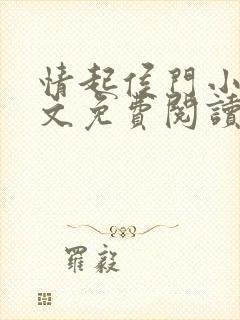 情起侯門小
文免費閱讀
羅毅